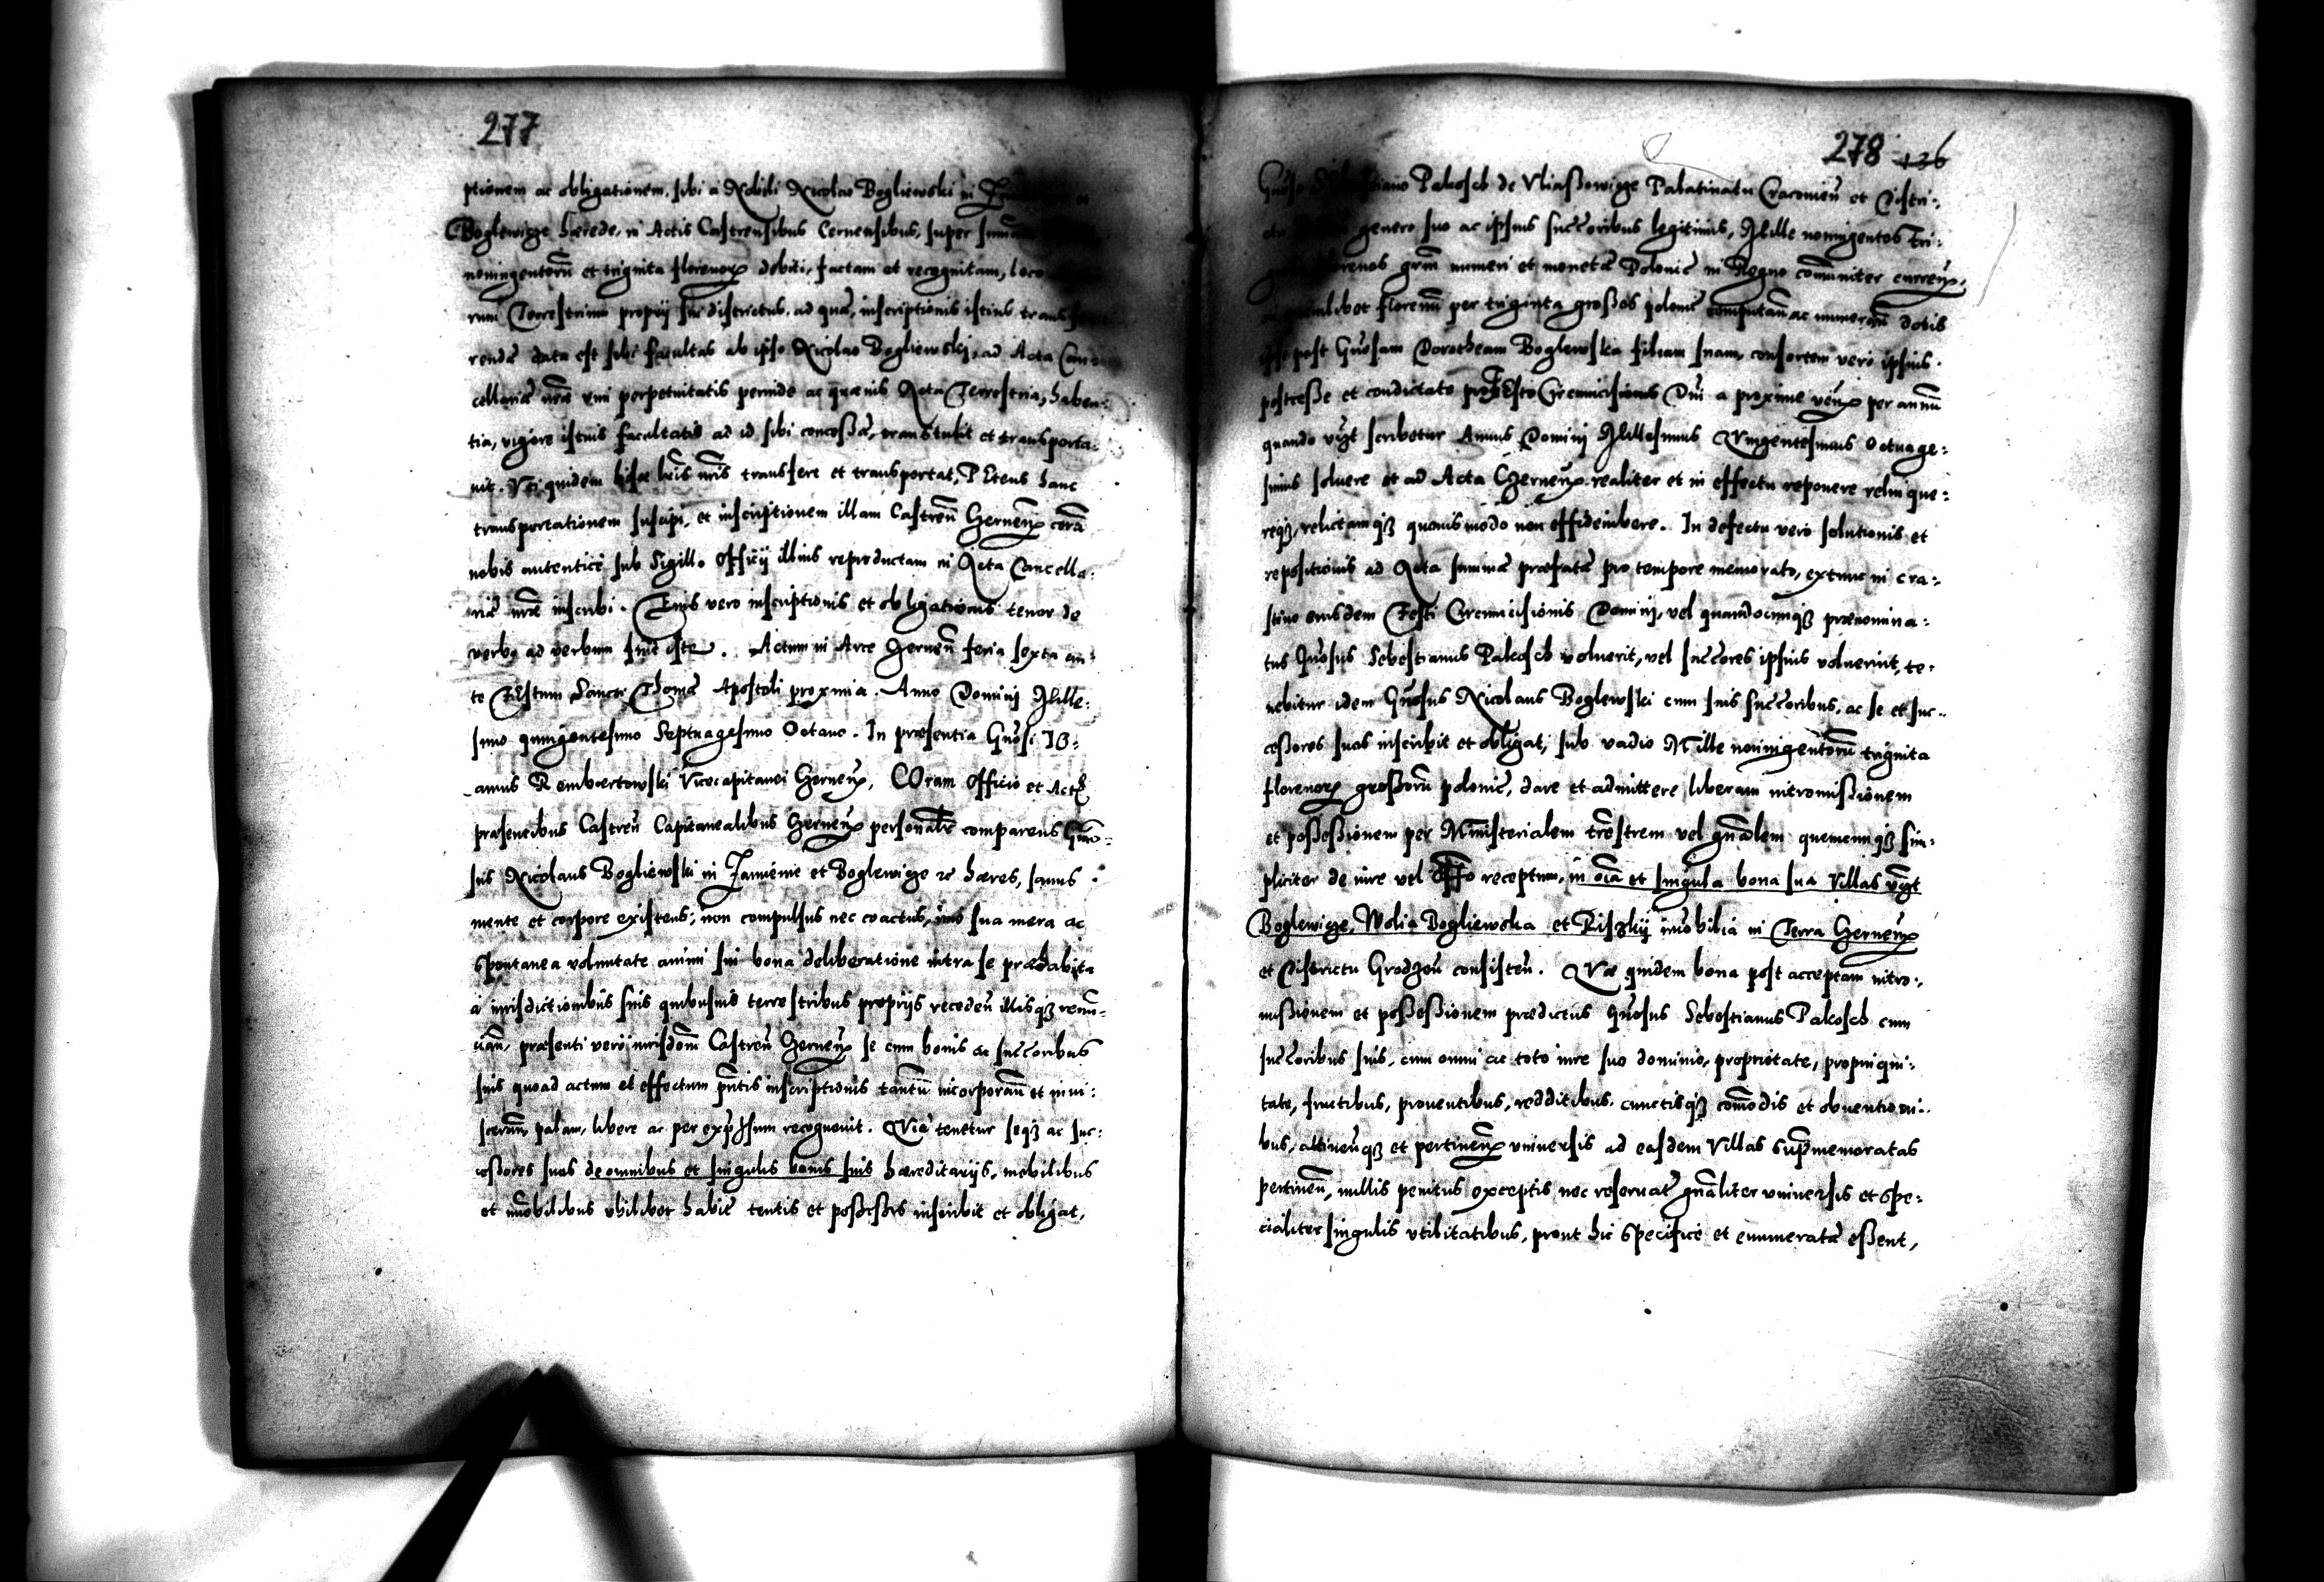 277
ptionem ac obligationem, sibi a Nobili Nicolao Bogliewski in
Boglewicze hærede, in Actis Castrensibus Cernensibus, super
noningentorũ et triginta florenorꝝ debiti, factam et recognitam, loco
rum Terrestrium proprij sui districtus, ad quã, inscriptionis istius
rendæ data est sibi facultas ab ipso Nicolao Bogliewski, ad Acta Can-
cellariæ nr̃æ vim perpetuitatis perinde ac quæuis Acta Terrestria, haben-
tia, vigore istius facultatis ad id sibi concessæ, transtulit et transporta-
uit. Vti quidem hisce lr̃is nr̃is transfert et transportat, PEtens hanc
transportationem suscipi, et inscriptionem illam Castreñ Czerneñ corã
nobis autenticè sub Sigillo Officij illius reproductam in Acta Cancella:
riæ nr̃æ inscribi. Cuius vero inscriptionis et obligationis tenor de
verbo ad verbum fuit iste. Actum in Arce Czerneñ feria sexta an:
te FEstum Sancti Thomæ Apostoli proxima. Anno Domini Mille:
simo quingentesimo Septuagesimo Octauo. In præsentia Gñosi IO:
annis Rembertowski Vicecapitanei Czerneñ, COram Officio et Actis
præsentibus Castreñ Capitanealibus Czerneñ personalr̃ comparens Gñro-
sus Nicolaus Bogliewski in Janienie et Boglewicze rc hæres, sanus
mente et corpore existens; non compulsus nec coactus, imò sua mera ac
spontanea voluntate animi sui bona deliberatione intra se præhabita
à iurisdictionibus suis quibusuis terrestribus proprijs recedeñ illisqꝫ renũ-
ciañ, præsenti verò iurisdõni Castreñ Czerneñ se cum bonis ac succ̃oribus
suis quoad actum et effectum pñtis inscriptionis tantũ incorporañ et inui:
scerañ, palam, libere ac per expressum recognouit. QVia tenetur seqꝫ ac suc:
cessores suos de omnibus et singulis bonis suis hæreditarijs, mobilibus
et im̃obilibus vbilibet habit̃ tentis et possessis inscribit et obligat,
278 136
Palcosch de Vliassowicze Palatinatu Cracouieñ et Distri:
genero suo ac ipsius succ̃oribus legitimis, Mille noningentos tri:
florenos gr̃m numeri et monetæ Polonic̃ in Regno com̃uniter curreñ,
quemlibet florenũ per triginta grossos polonic̃ computañ ac numerañ dotis
ipse post Gñosam Dorotheam Boglewska filiam suam, consortem verò ipsius
postcesse et condictate pro FEsto Circumcisionis Dñi a proxime veñ per annũ
quando vꝫt scribetur Annus Dominj Millesimus QVingentesimus Octuage:
simus soluere et ad Acta Czerneñ realiter et in effectu reponere relinque:
reqꝫ, relictamqꝫ quouis modo non offidembere. In defectu verò solutionis et
repositionis ad Acta summæ præfatæ pro tempore memorato, extunc in cra:
stino eiusdem Festi Circumcisionis Dominj, vel quandocumqꝫ prænomina:
tus Gñosus Sebestianus Palcosch voluerit, vel succ̃ores ipsius voluerint, te:
nebitur idem Gñosus Nicolaus Boglewski cum suis succ̃oribus, ac se et suc:
cessores suos inscribit et obligat, sub vadio Mille noningentorũ triginta
florenorꝝ grossorũ polonic̃, dare et admittere liberam intromissionem
et possessionem per Ministerialem tr̃estrem vel gñalem quemcumqꝫ sim:
pliciter de iure vel offo receptum, in oĩa et singula bona sua Villas vꝫt
Boglewicze, Wolia Bogliewska et Riszkij im̃obilia in Terra Czerneñ
et Districtu Grodzeñ consisteñ. QVæ quidem bona post acceptam intro:
missionem et possessionem prædictus Gñosus Sebestianus Palcosch cum
succ̃oribus suis, cum omni ac toto iure suo dominio, proprietate, propinqui:
tate, fructibus, prouentibus, redditibus, cunctisqꝫ com̃odis et obuentioni:
bus, attineñqꝫ et pertineñ vniuersis ad easdem Villas suprmemoratas
pertineñ, nullis penitus exceptis nec reseruat̃ gñaliter vniuersis et spe:
cialiter singulis vtilitatibus, prout hic specificè et enumeratæ essent,